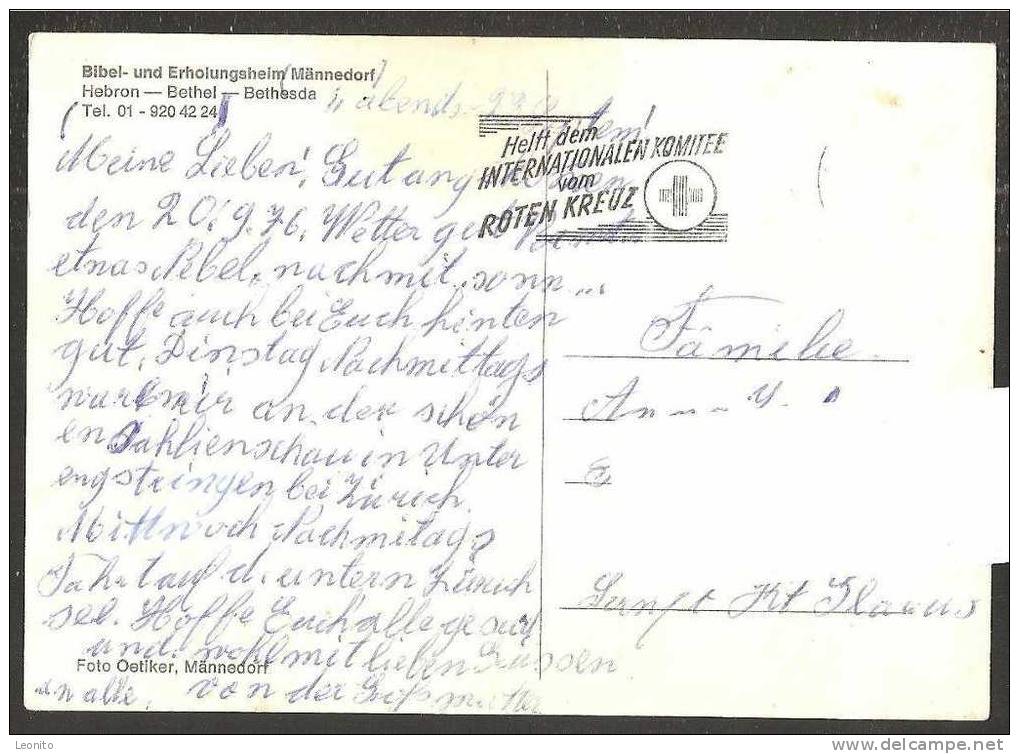 Bibel- und Erholungsheim Männedorf
Hebron — Bethel — Bethesda
Tel. 01 - 920 42 24
abends
Helft dem
INTERNATIONALEN KOMITEE
vom
ROTEN KREUZ
Meine Lieben! Gut
den 20.9.76, Wetter
etwas Nebel, nachmit. sonn...
Hoffe auch bei Euch hinten
gut. Dinstag Nachmittags
waren mir an der schön
en Dahlienschau in Unter
engstringen bei Zürich.
Mittwoch Nachmitags
Fahrt auf d. untern Zürich
see. Hoffe Euch alle gesund
und wohl mit lieben Grüssen
an alle, von der Großmutter
Familie
Kt Glarus
Foto Oetiker, Männedorf
Leonito
www.delcampe.net